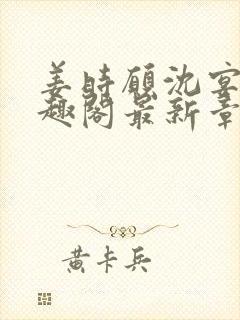 姜时愿沈宴
趣阁最新章
黄卡兵